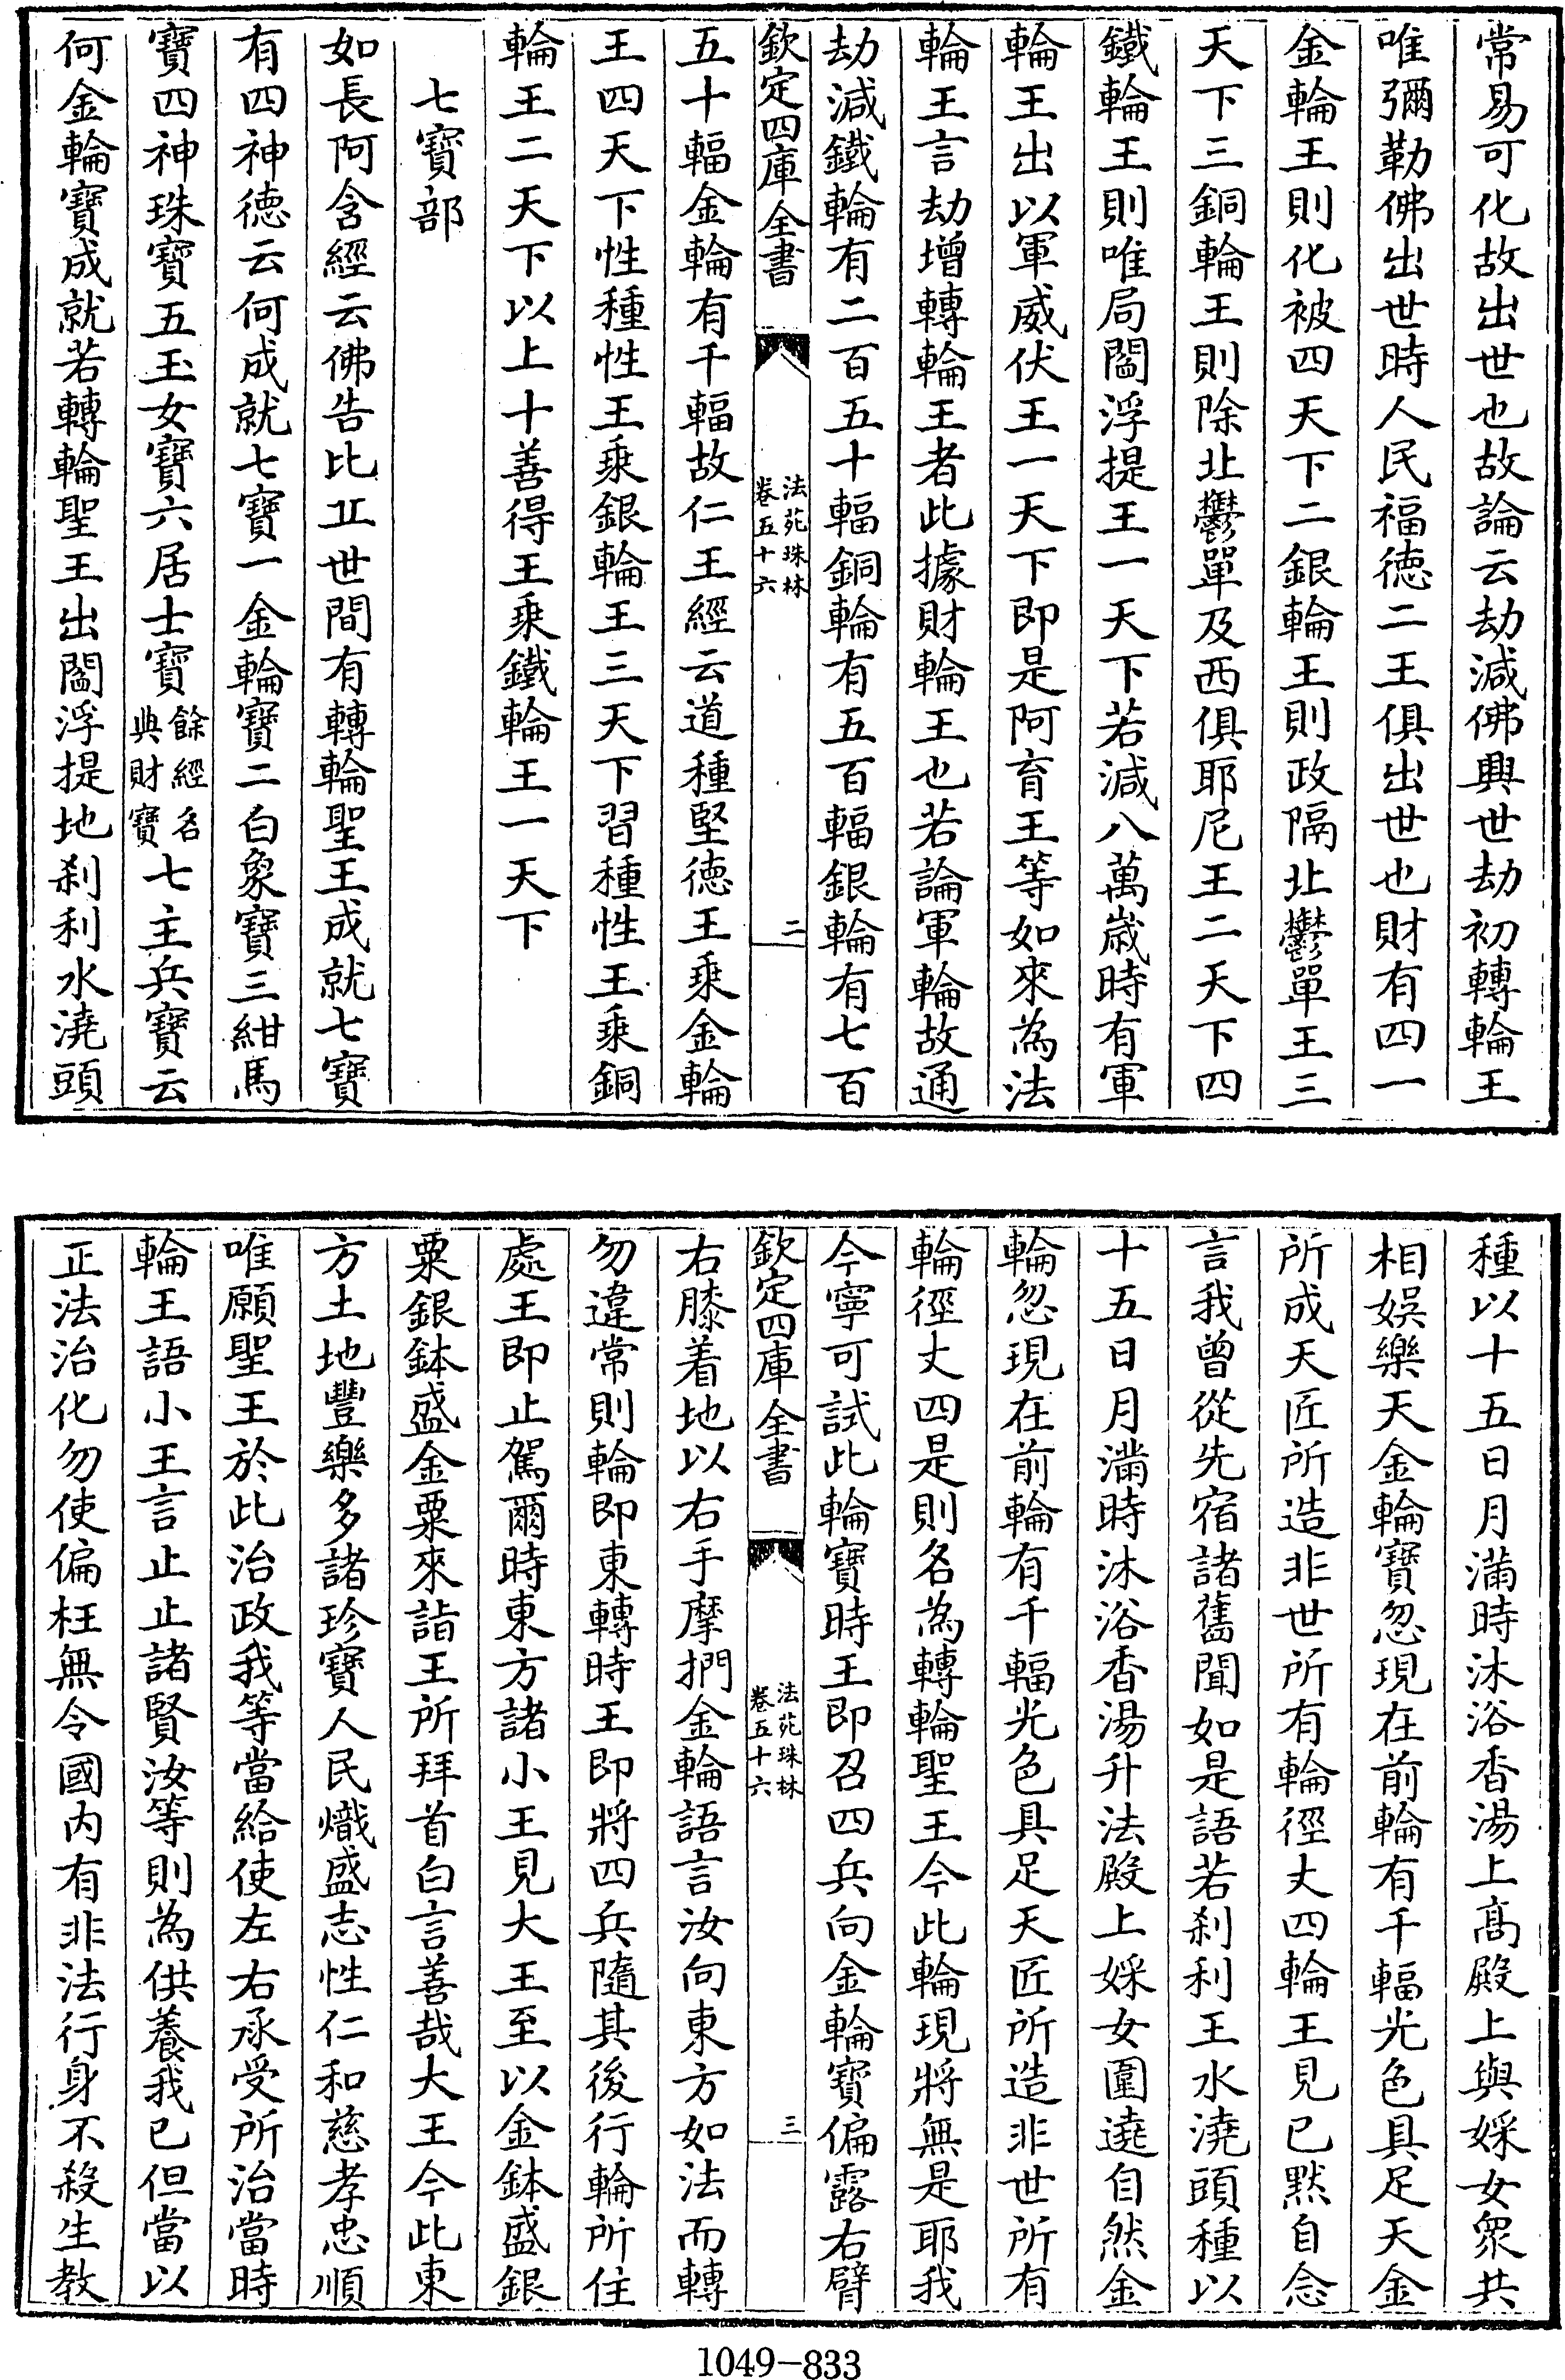 常易可化故出世也故論云劫減佛興世劫初轉輪王
唯彌勒佛出世時人民福徳二王俱出世也財有四一
金輪王則化被四天下二銀輪王則政隔北鬱單王三
天下三銅輪王則除北鬱單及西俱耶尼王二天下四
鐵輪王則唯局閻浮提王一天下若減八萬歳時有軍
輪王出以軍威伏王一天下即是阿育王等如來為法
輪王言劫增轉輪王者此據財輪王也若論軍輪故通
劫減鐵輪有二百五十輻銅輪有五百輻銀輪有七百
欽定四庫全書 法苑珠林卷五十六 二
五十輻金輪有千輻故仁王經云道種堅徳王乘金輪
王四天下性種性王乘銀輪王三天下習種性王乘銅
輪王二天下以上十善得王乘鐵輪王一天下
七寶部
如長阿含經云佛告比丘世間有轉輪聖王成就七寶
有四神徳云何成就七寶一金輪寶二白象寶三紺馬
寶四神珠寶五玉女寶六居士寶餘經名典財寶七主兵寶云
何金輪寶成就若轉輪聖王出閻浮提地刹利水澆頭
種以十五日月滿時沐浴香湯上髙殿上與婇女衆共
相娛樂天金輪寶忽現在前輪有千輻光色具足天金
所成天匠所造非世所有輪徑丈四輪王見已黙自念
言我曾從先宿諸舊聞如是語若刹利王水澆頭種以
十五日月滿時沐浴香湯升法殿上婇女圍遶自然金
輪忽現在前輪有千輻光色具足天匠所造非世所有
輪徑丈四是則名為轉輪聖王今此輪現將無是耶我
今寧可試此輪寶時王即召四兵向金輪寶偏露右臂
欽定四庫全書 法苑珠林卷五十六 三
右膝着地以右手摩捫金輪語言汝向東方如法而轉
勿違常則輪即東轉時王即將四兵隨其後行輪所住
處王即止駕爾時東方諸小王見大王至以金鉢盛銀
粟銀鉢盛金粟來詣王所拜首白言善哉大王今此東
方土地豐樂多諸珍寶人民熾盛志性仁和慈孝忠順
唯願聖王於此治政我等當給使左右承受所治當時
輪王語小王言止止諸賢汝等則為供養我已但當以
正法治化勿使偏枉無令國内有非法行身不殺生教
1049-833